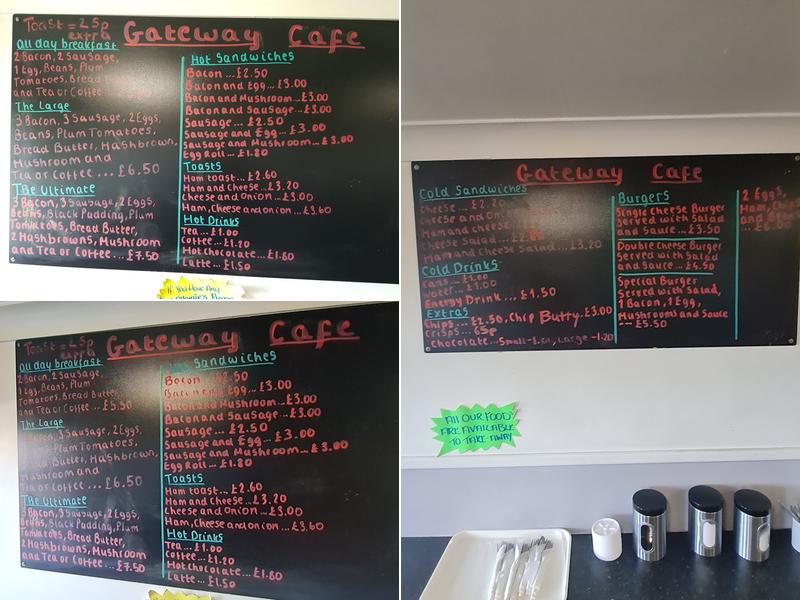 Toast = 25p
extra
Gateway Cafe
All day breakfast
2 Bacon, 2 Sausage,
1 Egg, Beans, Plum
Tomatoes, Bread
and Tea or Coffee
The Large
3 Bacon, 3 Sausage, 2 Eggs,
Beans, Plum Tomatoes,
Bread Butter, Hashbrown,
Mushroom and
Tea or Coffee ... £6.50
The Ultimate
3 Bacon, 3 Sausage, 2 Eggs,
Beans, Black Pudding, Plum
Tomatoes, Bread Butter,
2 Hashbrowns, Mushroom
and Tea or Coffee ... £7.50
Hot Sandwiches
Bacon ... £2.50
Bacon and Egg ... £3.00
Bacon and Mushroom ... £3.00
Bacon and Sausage ... £3.00
Sausage ... £2.50
Sausage and Egg ... £3.00
Sausage and Mushroom ... £3.00
Egg Roll ... £1.80
Toasts
Ham toast ... £2.60
Ham and Cheese ... £3.20
Cheese and Onion ... £3.00
Ham, Cheese and onion ... £3.60
Hot Drinks
Tea ... £1.00
Coffee ... £1.20
Hot chocolate ... £1.60
Latte ... £1.50
If You Have Any
Gateway Cafe
Cold Sandwiches
Cheese ... £2.20
Cheese and Onion
Ham and Cheese
Cheese Salad
Ham and Cheese Salad ... £3.20
Cold Drinks
Cans ... £1.00
Water ... £1.00
Energy Drink ... £1.50
Extras
Chips ... £2.50, Chip Butty £3.00
Crisps ... 65p
Chocolate ... Small
Large - 1.20
Burgers
Single Cheese Burger
Served with Salad
and Sauce ... £3.50
Double Cheese Burger
Served with Salad
and Sauce ... £4.50
Special Burger
Served with Salad,
1 Bacon, 1 Egg,
Mushrooms and Sauce
... £5.50
2 Eggs,
Ham, Chips
and
£6.00
All OUR FOODS
ARE AVAILABLE
TO TAKE AWAY
Toast = 25p
extra
Gateway Cafe
All day breakfast
2 Bacon, 2 Sausage,
1 Egg, Beans, Plum
Tomatoes, Bread Butter
and Tea or Coffee ... £5.50
The Large
3 Bacon, 3 Sausage, 2 Eggs,
Plum Tomatoes,
Bread Butter, Hashbrown,
Mushroom and
Tea or Coffee ... £6.50
The Ultimate
3 Bacon, 3 Sausage, 2 Eggs,
Beans, Black Pudding, Plum
Tomatoes, Bread Butter,
2 Hashbrowns, Mushroom
and Tea or Coffee ... £7.50
Sandwiches
Bacon ... £2.50
Bacon and Egg ... £3.00
Bacon and Mushroom ... £3.00
Bacon and Sausage ... £3.00
Sausage ... £2.50
Sausage and Egg ... £3.00
Sausage and Mushroom ... £3.00
Egg Roll ... £1.80
Toasts
Ham toast ... £2.60
Ham and Cheese ... £3.20
Cheese and Onion ... £3.00
Ham, Cheese and onion ... £3.60
Hot Drinks
Tea ... £1.00
Coffee ... £1.20
Hot Chocolate ... £1.60
Latte ... £1.50